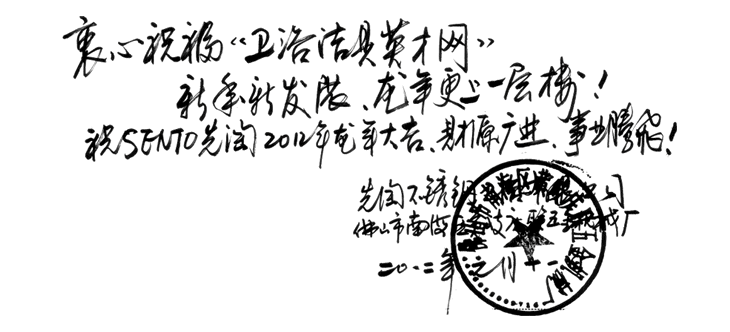 衷心祝福“卫浴洁具英才网”
新年新发展、龙年更上一层楼！
祝SENTO先淘2012年龙年大吉、财源广进、事业腾飞！
先淘不锈钢
佛山市南海 五 厂
二〇一二年 月十一